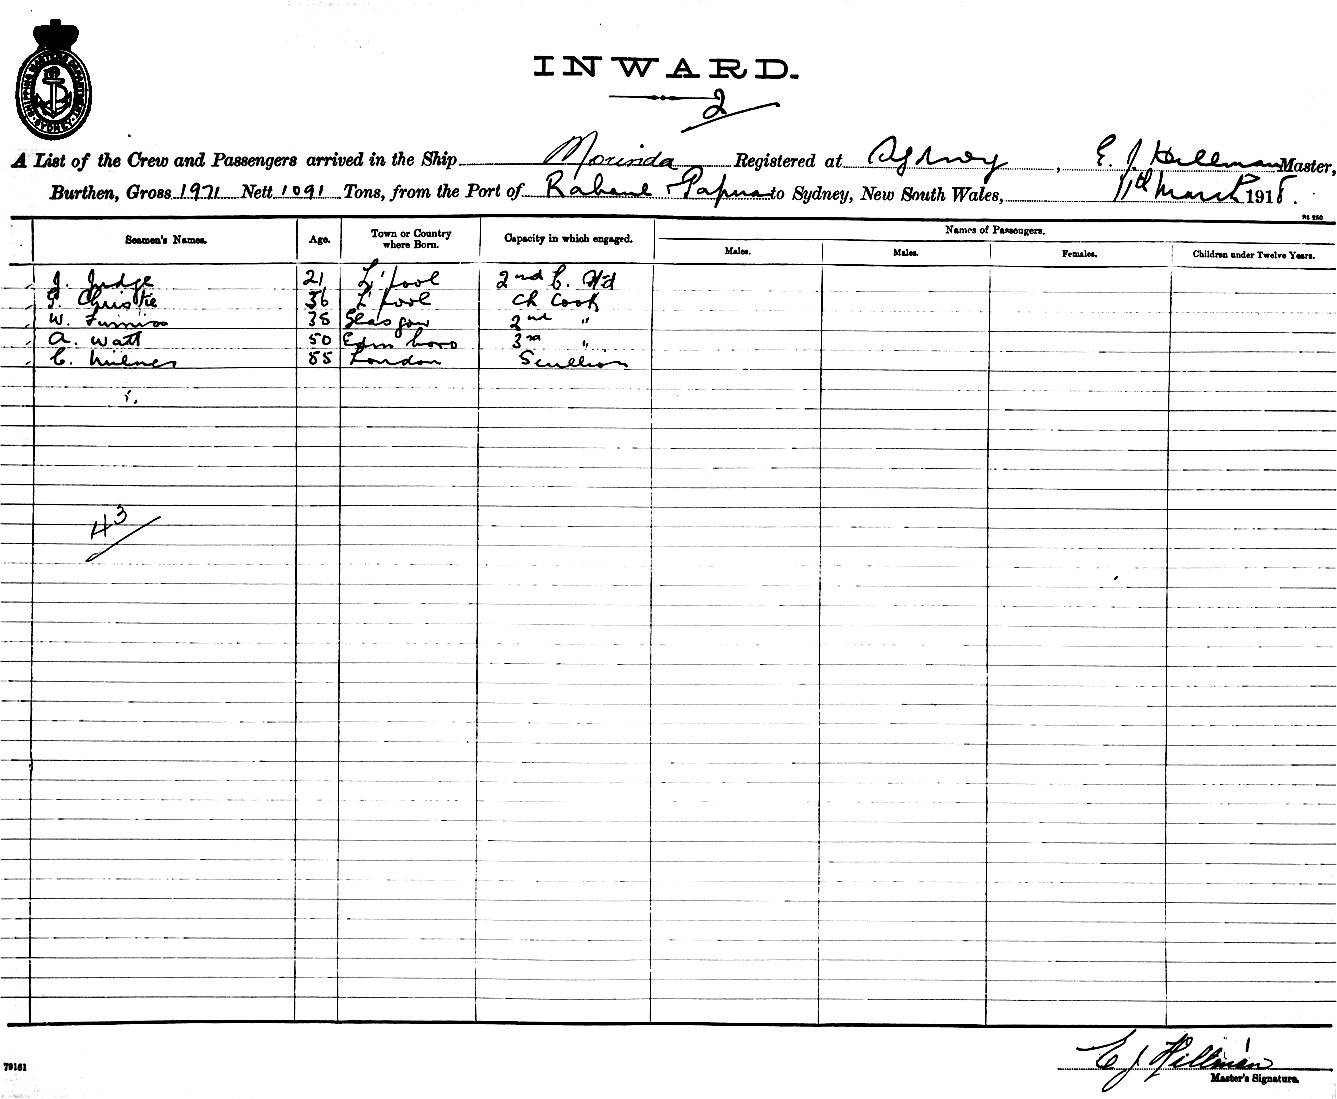 SHIPPING MASTER'S DEPARTMENT SYDNEY
INWARD.
2
A List of the Crew and Passengers arrived in the Ship Morinda Registered at Sydney, E. J. Hillman Master,
Burthen, Gross 1971 Nett 1091 Tons, from the Port of Rabaul & Papua to Sydney, New South Wales, 11th March 1918.
Seamen's Names. Age. Town or Country where Born. Capacity in which engaged. Names of Passengers.
Males. Males. Females. Children under Twelve Years.
J. Judge 21 L'pool 2nd C. Std
Christie 36 L'pool Ch Cook
W. Furniss 38 Glasgow 2nd "
A. Watt 50 Edinboro 3rd "
C. Milner 55 London Scullion
43
E J Hillman
79161 Master's Signature.